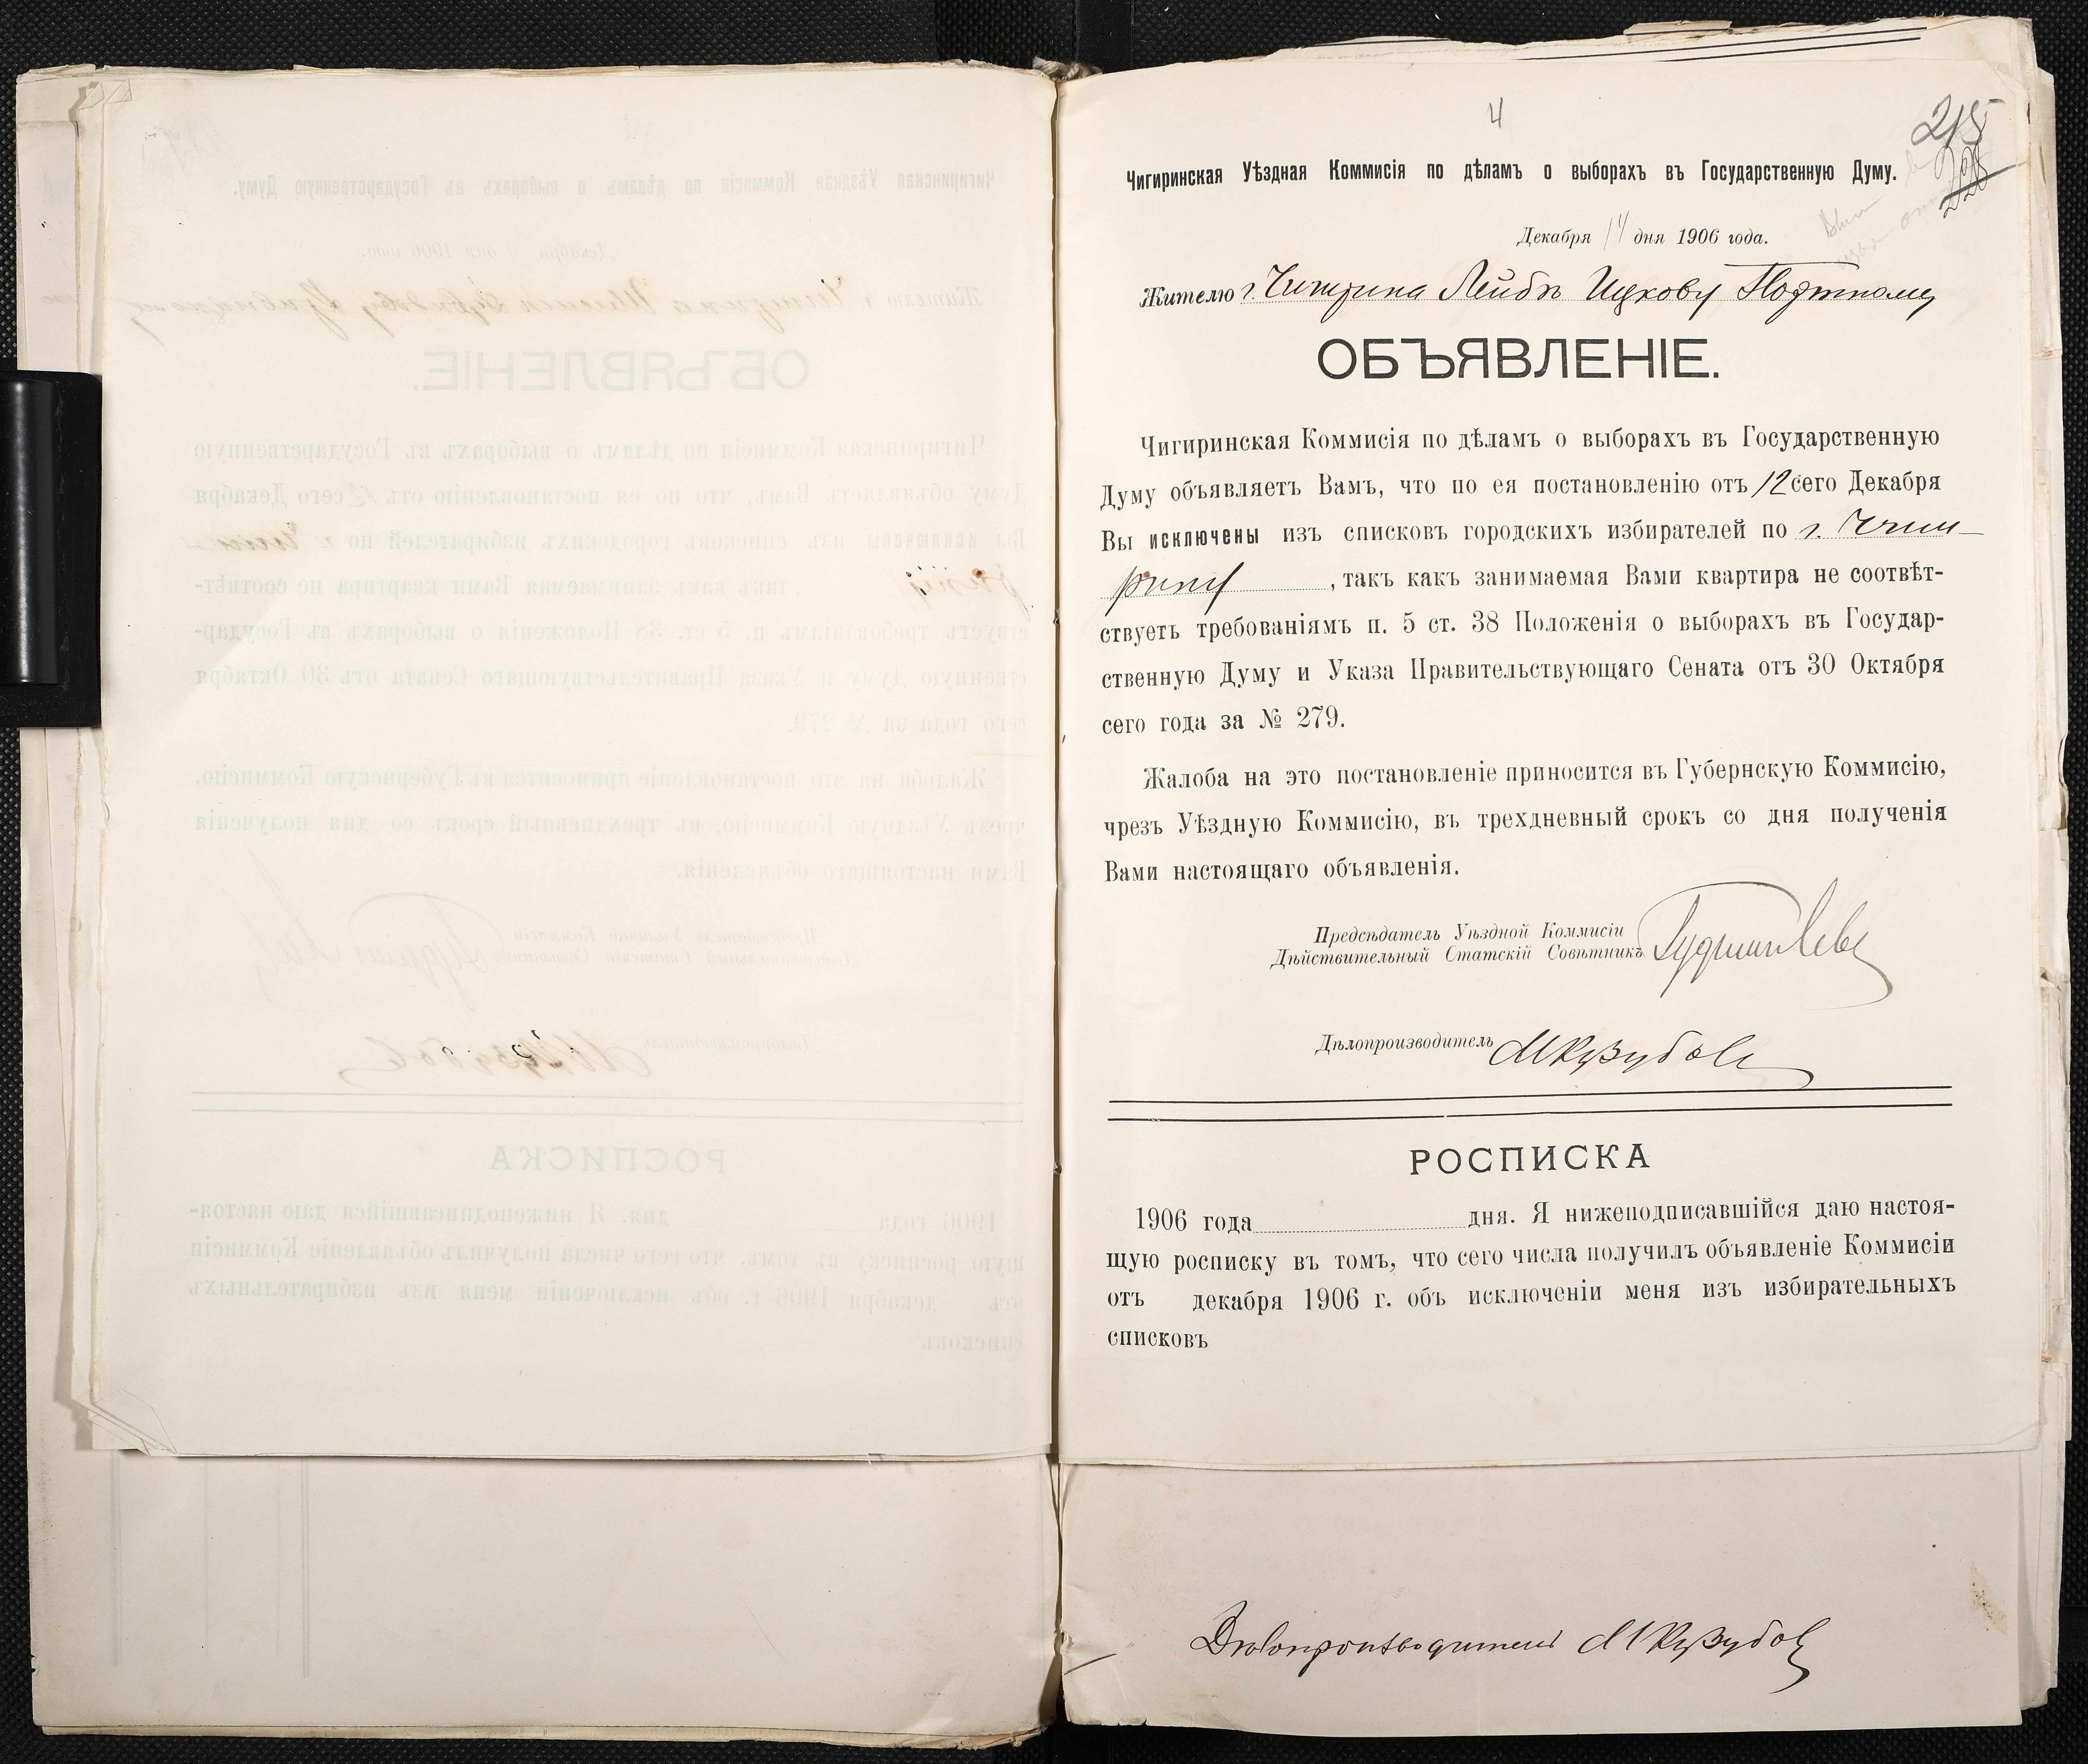 4
215
Чигиринская Уѣздная Коммисія по дѣламъ о выборахъ въ Государственную Думу.
Декабря 14 дня 1906 года.
Жителю г. Чигирина Лейбѣ Ицкову Портному
ОБЪЯВЛЕНІЕ.
Чигиринская Коммисія по дѣламъ о выборахъ въ Государственную
Думу объявляетъ Вамъ, что по ея постановленію отъ 12 сего Декабря
Вы исключены изъ списковъ городскихъ избирателей по г. Чиги-
рину, такъ какъ занимаемая Вами квартира не соотвѣт-
ствуетъ требованіямъ п. 5 ст. 38 Положенія о выборахъ въ Государ-
ственную Думу и Указа Правительствующаго Сената отъ 30 Октября
сего года за № 279.
Жалоба на это постановленіе приносится въ Губернскую Коммисію,
чрезъ Уѣздную Коммисію, въ трехдневный срокъ со дня полученія
Вами настоящаго объявленія.
Предсѣдатель Уѣздной Коммисіи
Дѣйствительный Статскій Совѣтникъ
Дѣлопроизводитель
РОСПИСКА
1906 года дня. Я нижеподписавшійся даю настоя-
щую росписку въ томъ, что сего числа получилъ объявленіе Коммисіи
отъ декабря 1906 г. объ исключеніи меня изъ избирательныхъ
списковъ
Дѣлопроизводитель